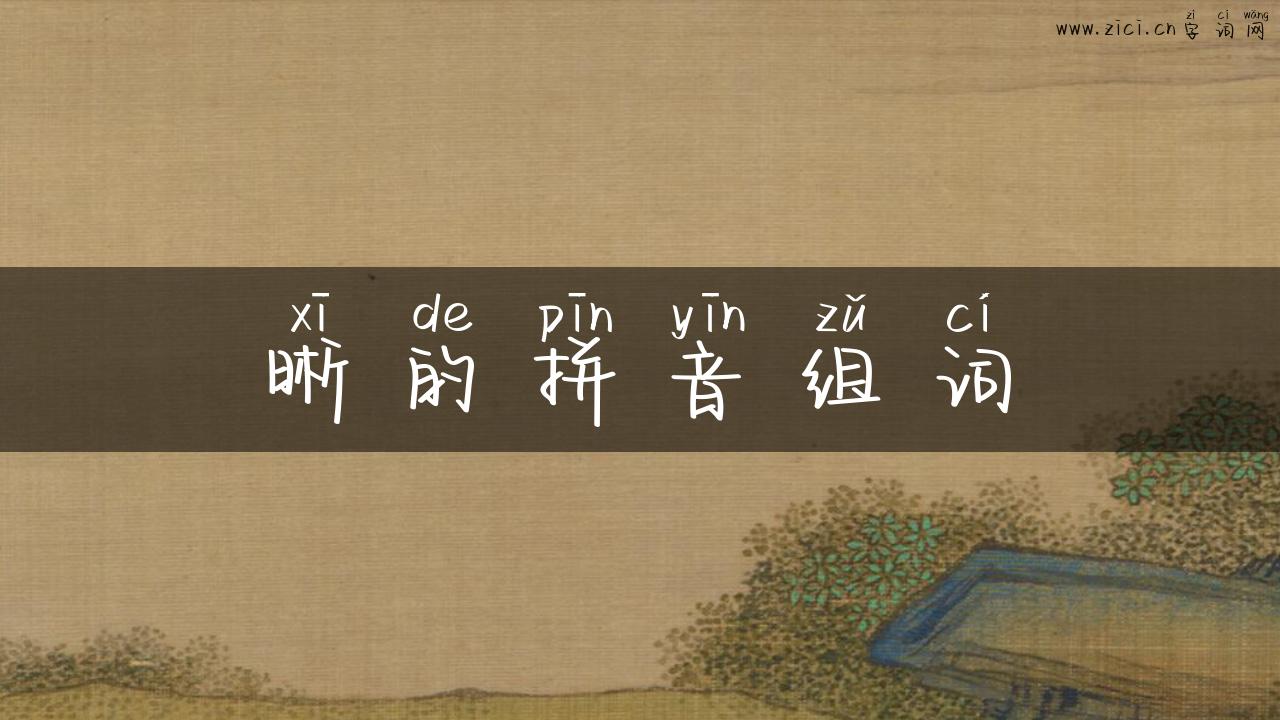 zì cí wǎng
www.zici.cn 字词网
xī de pīn yīn zǔ cí
晰的拼音组词